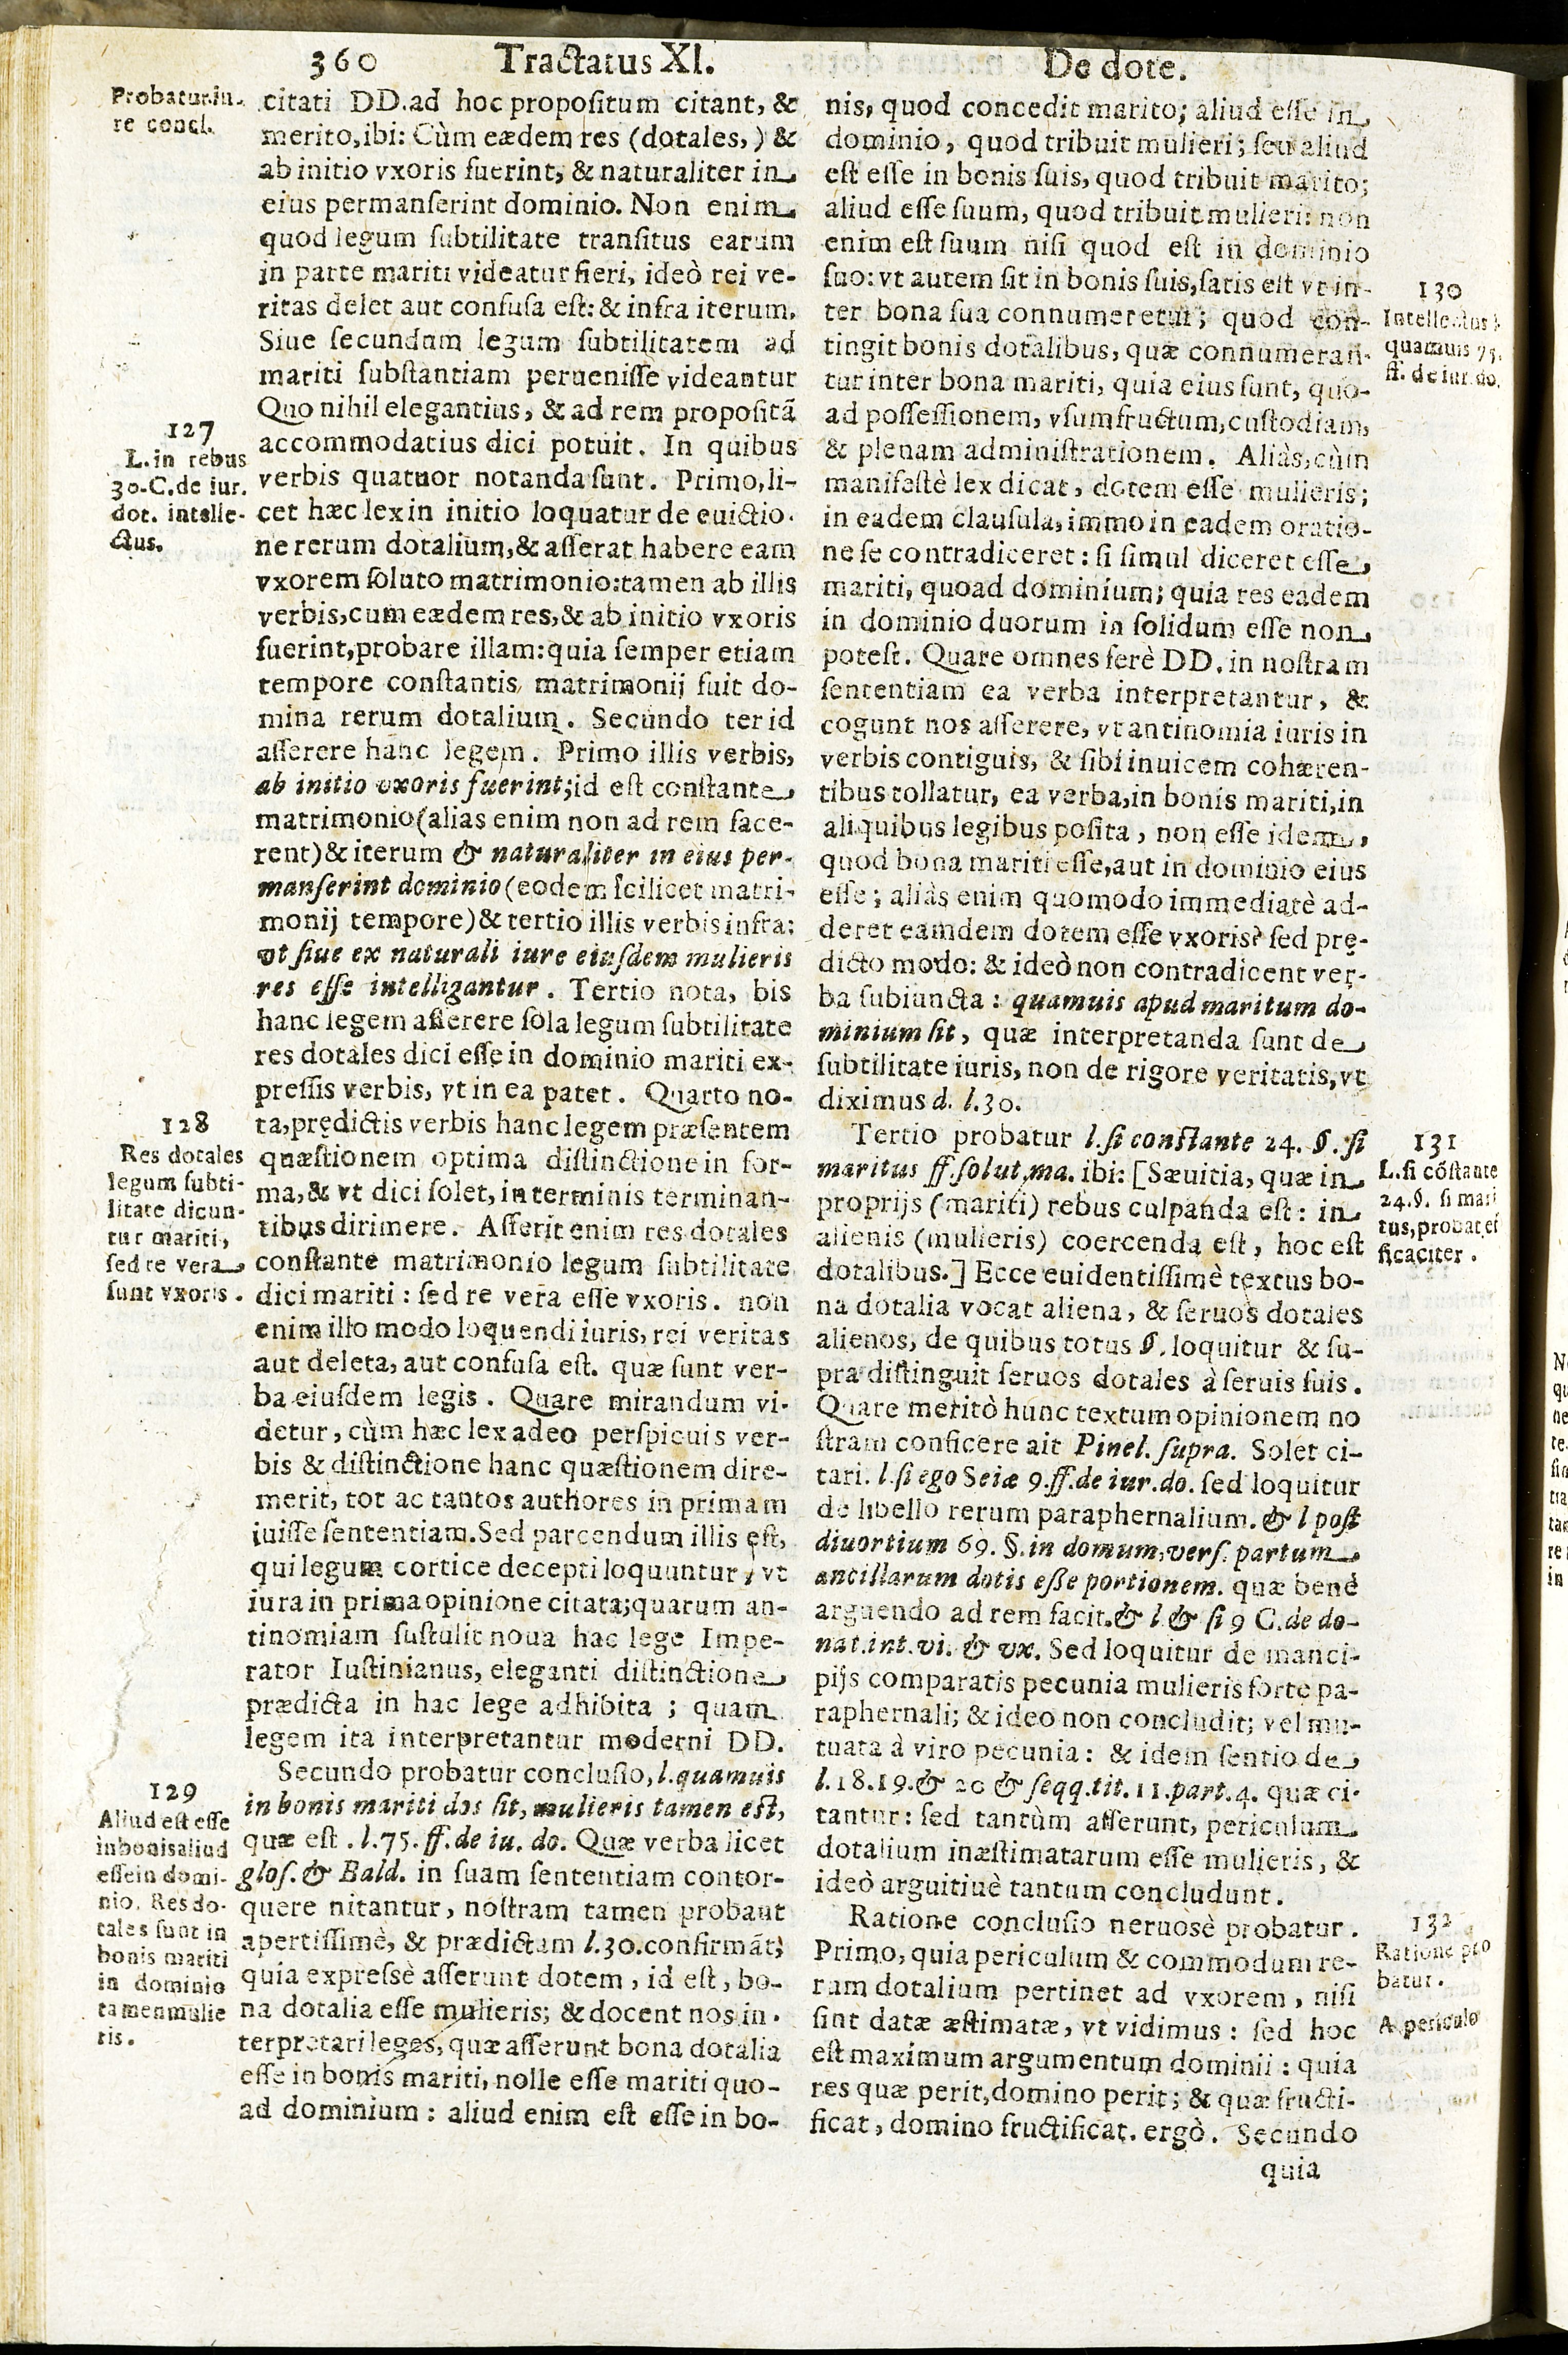 360 Tractatus XI. De dote.
Probatur iu-
re concl.
citati DD. ad hoc propositum citant, &
merito, ibi: Cùm eædem res (dotales,) &
ab initio vxoris fuerint, & naturaliter in
eius permanserint dominio. Non enim
quod legum subtilitate transitus earum
in parte mariti videatur fieri, ideò rei ve-
ritas delet aut confusa est: & infra iterum.
Siue secundum legum subtilitatem ad
mariti substantiam peruenisse videantur
Quo nihil elegantius, & ad rem propositã
accommodatius dici potuit. In quibus
verbis quatuor notanda sunt. Primo, li-
cet hæc lex in initio loquatur de euictio-
ne rerum dotalium, & asserat habere eam
vxorem soluto matrimonio: tamen ab illis
verbis, cum eædem res, & ab initio vxoris
fuerint, probare illam: quia semper etiam
tempore constantis matrimonij fuit do-
mina rerum dotalium. Secundo ter id
asserere hanc legem. Primo illis verbis,
ab initio vxoris fuerint; id est constante
matrimonio (alias enim non ad rem face-
rent) & iterum & naturaliter in eius per-
manserint dominio (eodem scilicet matri-
monij tempore) & tertio illis verbis infra:
vt siue ex naturali iure eiusdem mulieris
res esse intelligantur. Tertio nota, bis
hanc legem asserere sola legum subtilitate
res dotales dici esse in dominio mariti ex-
pressis verbis, vt in ea patet. Quarto no-
ta, prędictis verbis hanc legem præsentem
quæstionem optima distinctione in for-
ma, & vt dici solet, in terminis terminan-
tibus dirimere. Asserit enim res dotales
constante matrimonio legum subtilitate
dici mariti: sed re vera esse vxoris. non
enim illo modo loquendi iuris, rei veritas
aut deleta, aut confusa est. quæ sunt ver-
ba eiusdem legis. Quare mirandum vi-
detur, cùm hæc lex adeo perspicuis ver-
bis & distinctione hanc quæstionem dire-
merit, tot ac tantos authores in primam
iuisse sententiam. Sed parcendum illis est,
qui legum cortice decepti loquuntur, vt
iura in prima opinione citata; quarum an-
tinomiam sustulit noua hac lege Impe-
rator Iustinianus, eleganti distinctione
prædicta in hac lege adhibita; quam
legem ita interpretantur moderni DD.
Secundo probatur conclusio, l. quamuis
in bonis mariti dos sit, mulieris tamen est,
quæ est. l. 75. ff. de iu. do. Quæ verba licet
glos. & Bald. in suam sententiam contor-
quere nitantur, nostram tamen probant
apertissimè, & prædictam l. 30. confirmãt;
quia expressè asserunt dotem, id est, bo-
na dotalia esse mulieris; & docent nos in-
terpretari leges, quæ asserunt bona dotalia
esse in bonis mariti, nolle esse mariti quo-
ad dominium: aliud enim est esse in bo-
127
L. in rebus
30. C. de iur.
dot. intelle-
ctus.
128
Res dotales
legum subti-
litate dicun-
tur mariti,
sed re vera
sunt vxoris.
129
Aliud est esse
in bonis aliud
esse in domi-
nio. Res do-
tales sunt in
bonis mariti
in dominio
tamen mulie
ris.
nis, quod concedit marito; aliud esse in
dominio, quod tribuit mulieri; seu aliud
est esse in bonis suis, quod tribuit marito;
aliud esse suum, quod tribuit mulieri: non
enim est suum nisi quod est in dominio
suo: vt autem sit in bonis suis, satis est vt in-
ter bona sua connumeretur; quod con-
tingit bonis dotalibus, quæ connumeran-
tur inter bona mariti, quia eius sunt, quo-
ad possessionem, vsumfructum, custodiam,
& plenam administrationem. Aliàs, cùm
manifestè lex dicat, dotem esse mulieris;
in eadem clausula, immo in eadem oratio-
ne se contradiceret: si simul diceret esse
mariti, quoad dominium; quia res eadem
in dominio duorum in solidum esse non
potest. Quare omnes ferè DD. in nostram
sententiam ea verba interpretantur, &
cogunt nos asserere, vt antinomia iuris in
verbis contiguis, & sibi inuicem cohæren-
tibus tollatur, ea verba, in bonis mariti, in
aliquibus legibus posita, non esse idem,
quod bona mariti esse, aut in dominio eius
esse; aliàs enim quomodo immediatè ad-
deret eamdem dotem esse vxoris? sed prę-
dicto modo: & ideò non contradicent ver-
ba subiuncta: quamuis apud maritum do-
minium sit, quæ interpretanda sunt de
subtilitate iuris, non de rigore veritatis, vt
diximus d. l. 30.
Tertio probatur l. si constante 24. §. si
maritus ff. solut. ma. ibi: [Sæuitia, quæ in
proprijs (mariti) rebus culpanda est: in
alienis (mulieris) coercenda est, hoc est
dotalibus.] Ecce euidentissimè textus bo-
na dotalia vocat aliena, & seruos dotales
alienos, de quibus totus §. loquitur & su-
pra distinguit seruos dotales à seruis suis.
Quare meritò hunc textum opinionem no
stram conficere ait Pinel. supra. Solet ci-
tari. l. si ego Seiæ 9. ff. de iur. do. sed loquitur
de libello rerum paraphernalium. & l post
diuortium 69. §. in domum, vers. partum
ancillarum dotis esse portionem. quæ benè
arguendo ad rem facit. & l & si 9 C. de do-
nat. int. vi. & vx. Sed loquitur de manci-
pijs comparatis pecunia mulieris forte pa-
raphernali; & ideo non concludit; vel mu-
tuata à viro pecunia: & idem sentio de
l. 18. 19. & 20 & seqq. tit. 11. part. 4. quæ ci-
tantur: sed tantùm asserunt, periculum
dotalium inæstimatarum esse mulieris, &
ideò arguitiuè tantum concludunt.
Ratione conclusio neruosè probatur.
Primo, quia periculum & commodum re-
rum dotalium pertinet ad vxorem, nisi
sint datæ æstimatæ, vt vidimus: sed hoc
est maximum argumentum dominii: quia
res quæ perit, domino perit; & quæ fructi-
ficat, domino fructificat. ergò. Secundo
quia
130
Intellectus l.
quamuis 75.
ff. de iur. do.
131
L. si cõstante
24. §. si mari
tus, probat ef
ficaciter.
132
Ratione pro
batur.
A periculo